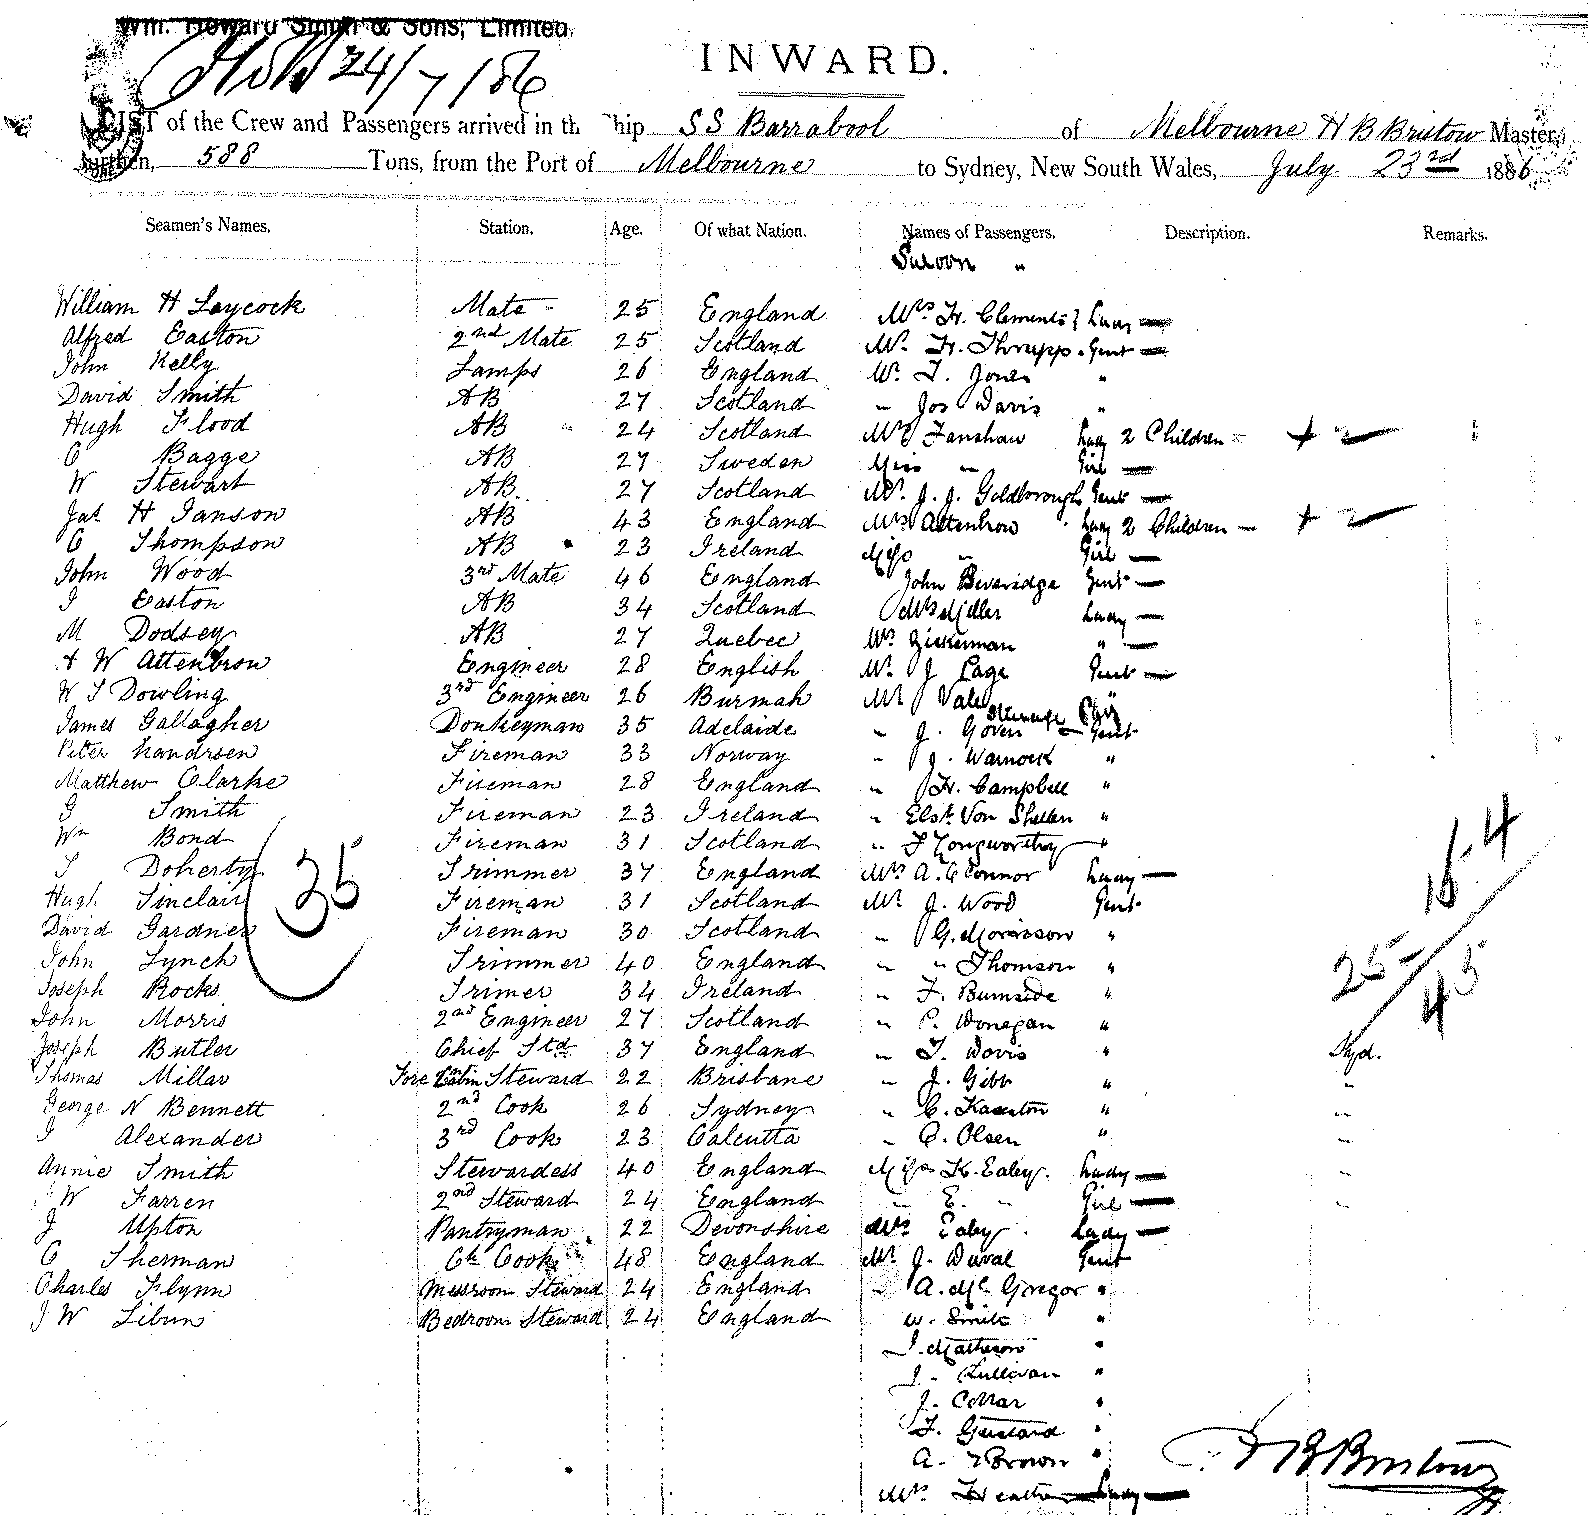 Wm. Howard Smith & Sons, Limited.
24/7/86
INWARD.
LIST of the Crew and Passengers arrived in the Ship SS Barrabool of Melbourne H B Bristow Master,
Burthen, 588 Tons, from the Port of Melbourne to Sydney, New South Wales, July 23rd 1886
Seamen's Names. Station. Age. Of what Nation. Names of Passengers. Description. Remarks.
Saloon "
William H Laycock Mate 25 England Mrs H. Clements Lady
Alfred Easton 2nd Mate 25 Scotland Mr. H. Thrupp Gent
John Kelly Lamps 26 England Mr. T. Jones "
David Smith AB 27 Scotland " Jos Davis "
Hugh Flood AB 24 Scotland Mrs Fanshaw Lady 2 Children + 2
C Bagge AB 27 Sweden Miss " Girl
W Stewart AB 27 Scotland Mr. J. J. Goldborough Gent
Jas H Janson AB 43 England Mrs Attenbrow Lady 2 Children + 2
C Thompson AB 23 Ireland Miss " Girl
John Wood 3rd Mate 46 England John Beveridge Gent
J Easton AB 34 Scotland Mrs Miller Lady
M Dodsey AB 27 Quebec Mrs Zickerman "
W Attenbrow Engineer 28 English Mr. J Page Gent
W S Dowling 3rd Engineer 26 Burmah Mr Vale "
Steerage
James Gallagher Donkeyman 35 Adelaide " J. Goven Gent
Peter Handrsen Fireman 33 Norway " J. Warnock "
Matthew Clarke Fireman 28 England " H. Campbell "
J Smith Fireman 23 Ireland " Von "
Wm Bond Fireman 31 Scotland " F Longworthy "
T Doherty Trimmer 37 England Mrs A. O'Connor Lady
Hugh Sinclair Fireman 31 Scotland Mr J. Wood Gent
David Gardner Fireman 30 Scotland " G. Morrisson "
John Lynch Trimmer 40 England " " Thomson "
Joseph Rocks Trimer 34 Ireland " F. Burnside "
John Morris 2nd Engineer 27 Scotland " P. Donegan "
Joseph Butler Chief Std 37 England " T. Davis " Syd.
Thomas Millar Fore Cabin Steward 22 Brisbane " J. Gibb " "
George N Bennett 2nd Cook 26 Sydney " C. " "
J Alexander 3rd Cook 23 Calcutta " C. Olsen " "
Annie Smith Stewardess 40 England Miss K. Ealey Lady "
W Farren 2nd Steward 24 England " E. " Girl "
J Upton Pantryman 22 Devonshire Mrs Ealey Lady
C Sherman Ch Cook 48 England Mr J. Duval Gent
Charles Flynn Messroom Steward 24 England " A. McGregor "
J W Libun Bedroom Steward 24 England W. Smith "
J. Matheson "
J. Sullivan "
J. Collar "
F. Gustard "
A. Brown "
Mrs Heather Lady
35
16.4
25
45
H B Bristow